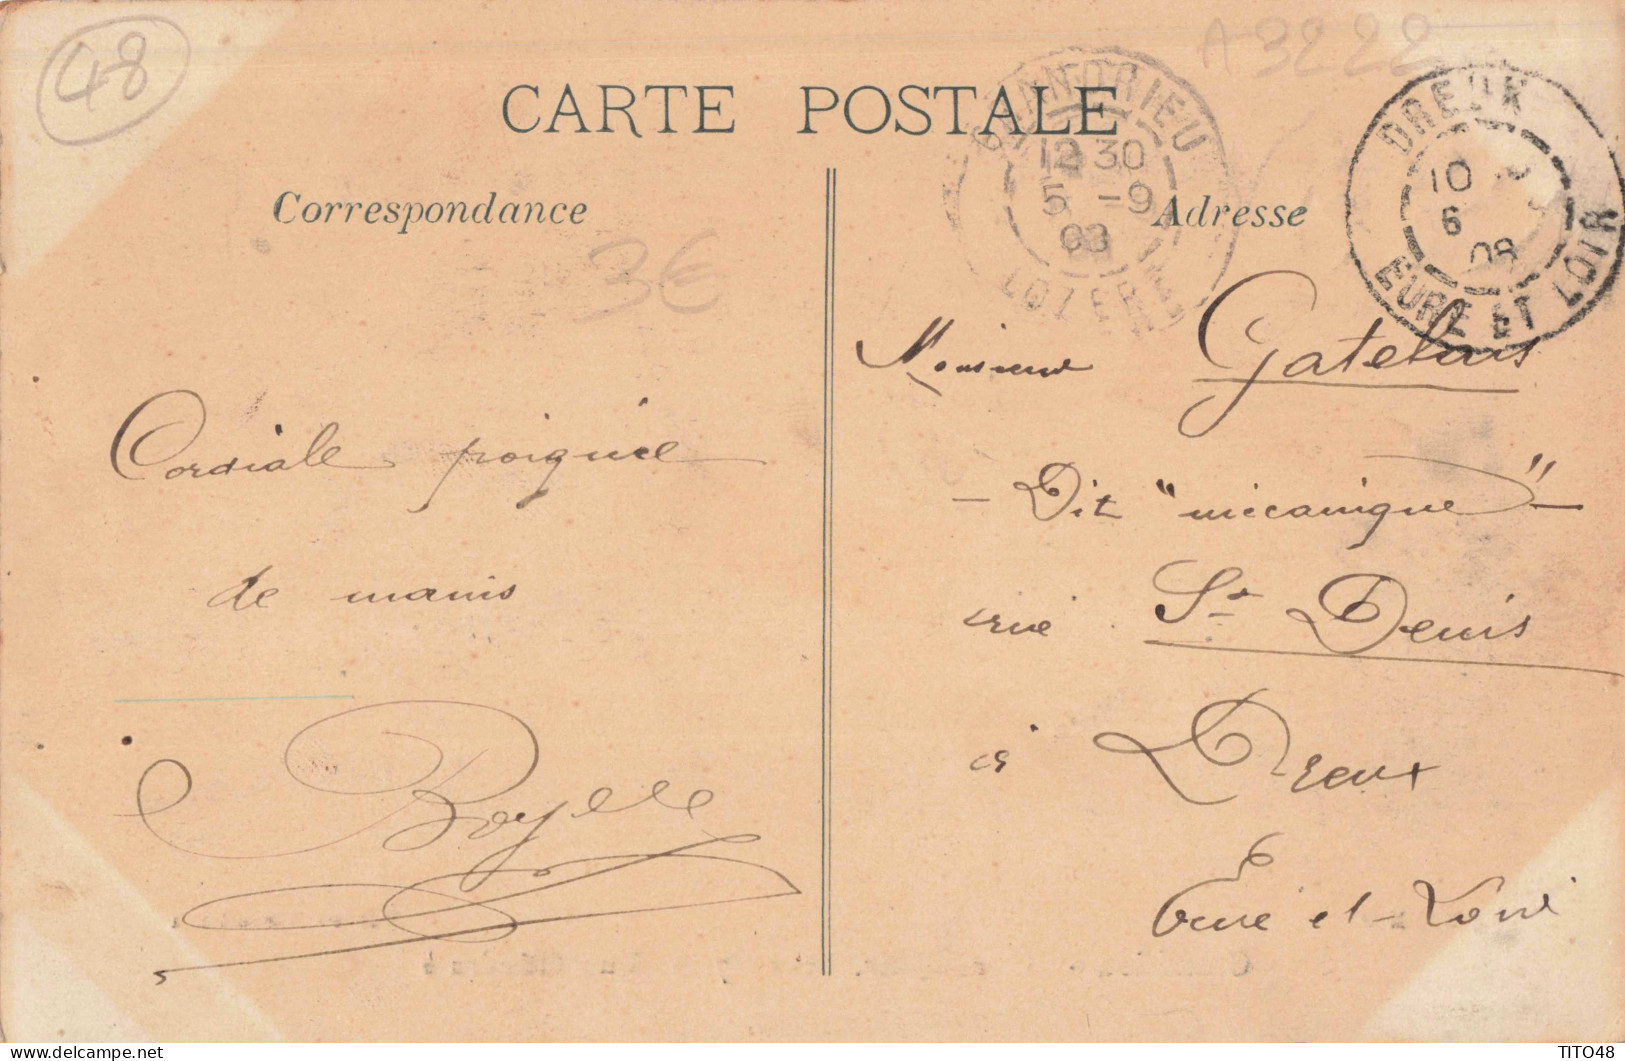 48
A3222
CARTE POSTALE
GRANDRIEU
12 30
5 -9
08
LOZERE
DREUX
10
6
08
EURE ET LOIR
Correspondance
Adresse
3€
Cordiale poignée
de mains
Monsieur Gatelais
- Dit "mécanique" -
rue St Denis
à Dreux
Eure et-Loir
TITO48